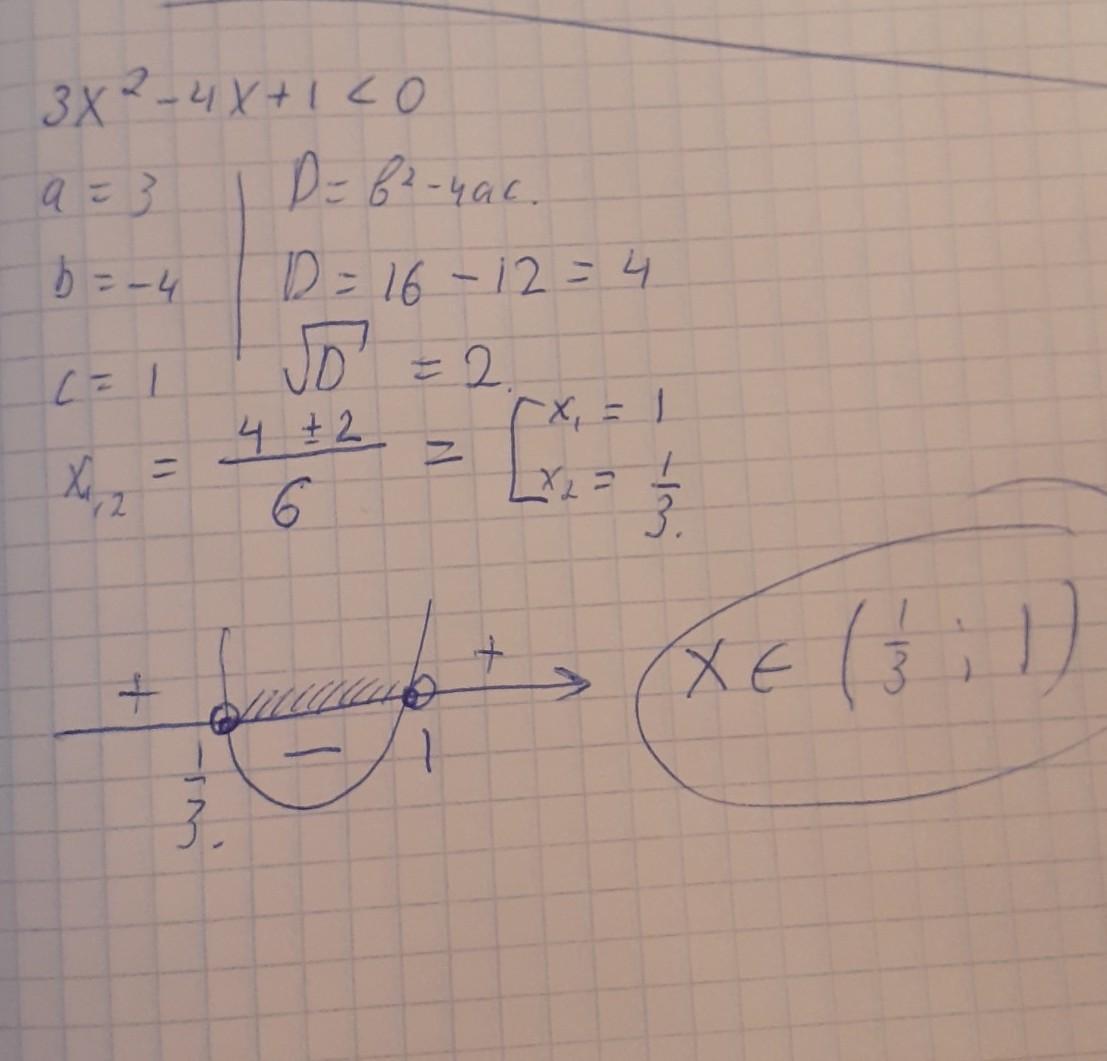 3x² - 4x + 1 < 0
a = 3 | D = b² - 4ac.
b = -4 | D = 16 - 12 = 4
c = 1 √D = 2.
x₁,₂ = (4 ± 2)/6 = [ x₁ = 1
x₂ = 1/3.
+ - +
1/3. 1
x ∈ (1/3 ; 1)